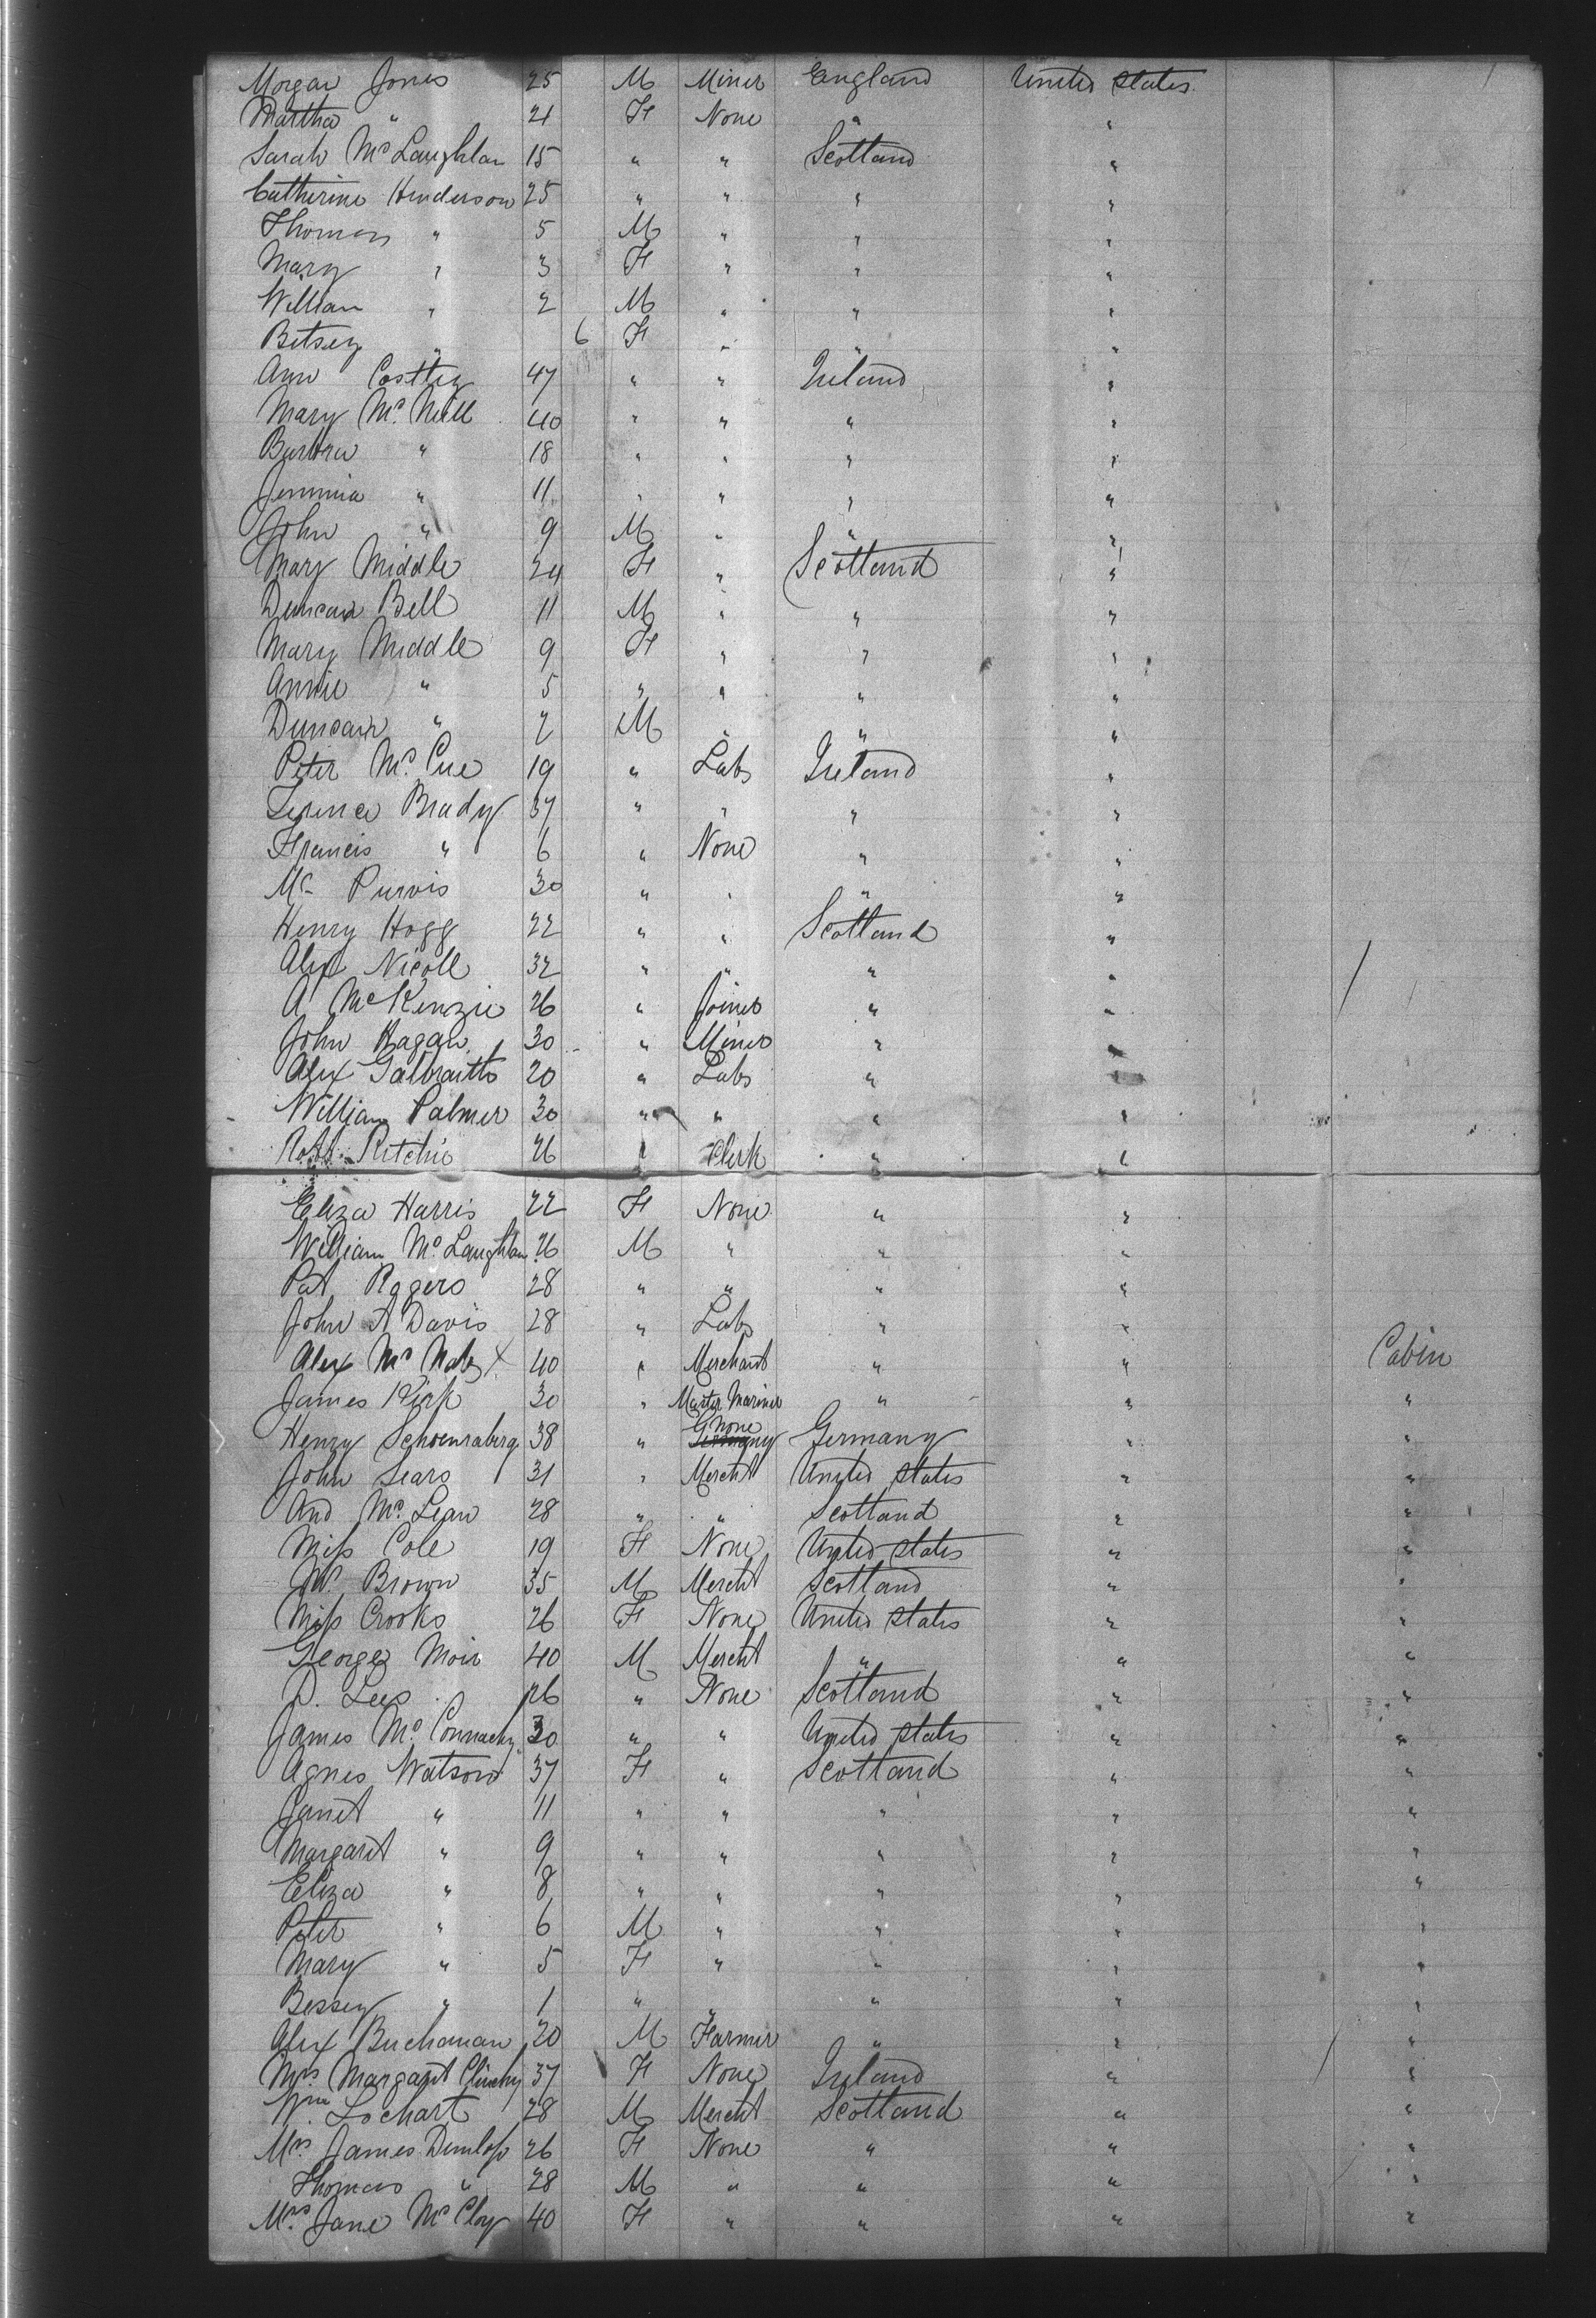 Morgan Jones 25 M Miner England United States
Martha " 21 F None " "
Sarah McLaughlan 15 " " Scotland "
Catherine Henderson 25 " " " "
Thomas " 5 M " " "
Mary " 3 F " " "
William " 2 M " " "
Betsey " 6 F " " "
Ann Costley 47 " " Ireland "
Mary McNeill 40 " " " "
Barbra " 18 " " " "
Jemmia " 11 " " " "
John " 9 M " " "
Mary Middle 24 F " Scotland "
Duncan Bell 11 M " " "
Mary Middle 9 F " " "
Annie " 5 " " " "
Duncan " 2 M " " "
Peter McCue 19 " Labr Ireland "
Terence Brady 37 " " " "
Francis " 6 " None " "
Mc Purvis 30 " " " "
Henry Hogg 22 " " Scotland "
Alex Nicoll 32 " " " "
A McKenzie 26 " Joiner " "
John Hagan 30 " Miner " "
Alex Galbraith 20 " Labr " "
William Palmer 30 " " " "
Robt. Ritchie 26 " Clerk " "
Eliza Harris 22 F None " "
William McLaughlan 26 M " " "
Pat Rogers 28 " " " "
John A Davis 28 " Labr " "
Alex McNab X 40 " Merchant " " Cabin
James Kirk 30 " Master Mariner " " "
Henry Schoenraberg 38 " None Germany " "
John Sears 31 " Mercht United States " "
And McLean 28 " " Scotland " "
Miss Cole 19 F None United States " "
Mr Brown 35 M Mercht Scotland " "
Miss Crooks 26 F None United States " "
George Moir 40 M Mercht " " "
D. Lees 26 " None Scotland " "
James McConnachy 30 " " United States " "
Agnes Watson 37 F " Scotland " "
Janet " 11 " " " " "
Margaret " 9 " " " " "
Eliza " 8 " " " " "
Peter " 6 M " " " "
Mary " 5 F " " " "
Bessey " 1 " " " " "
Alex Buchanan 20 M Farmer " " "
Mrs Margaret Clinchy 37 F None Ireland " "
Wm Lochart 28 M Mercht Scotland " "
Mrs James Dunlop 26 F None " " "
Thomas " 28 M " " " "
Mrs Jane McCloy 40 F " " " "